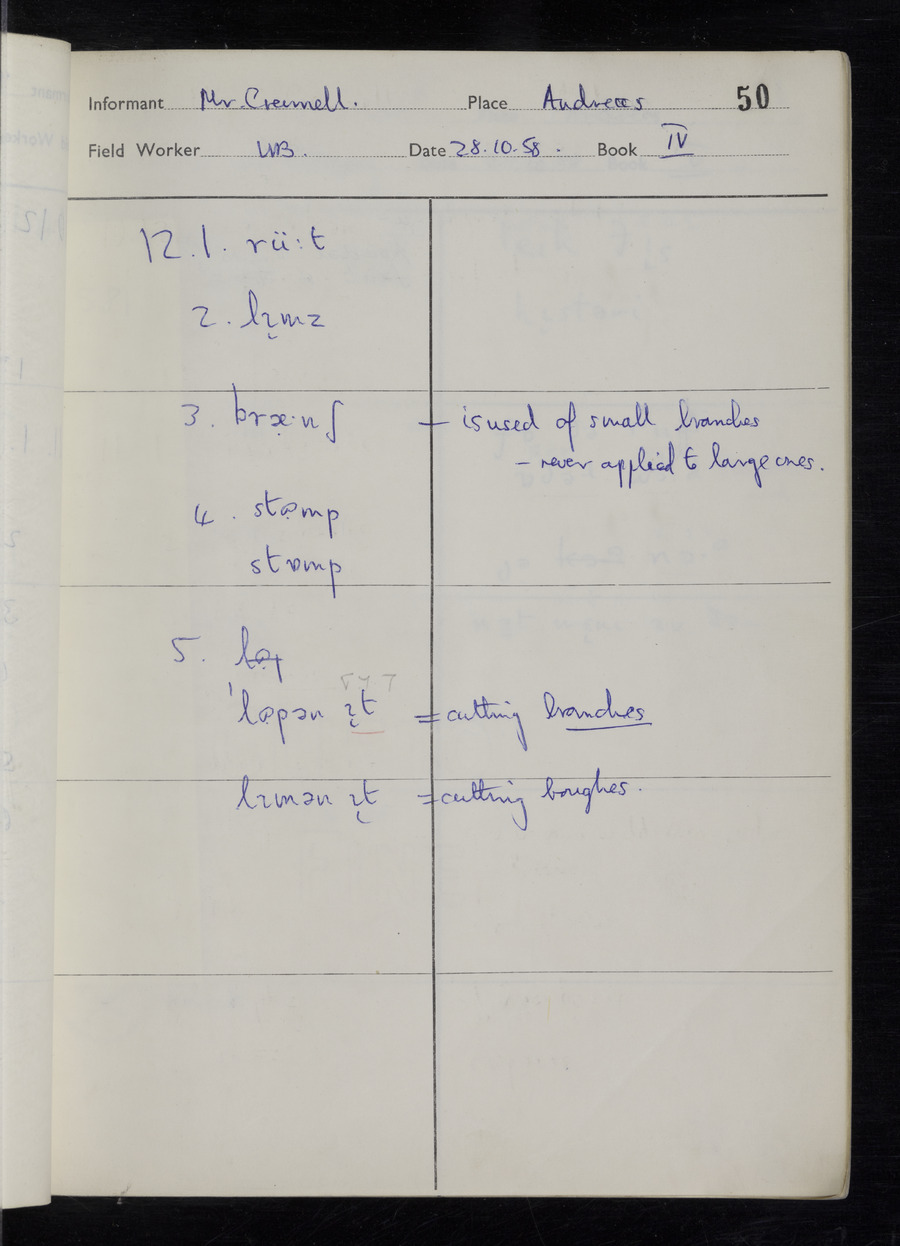 Informant Mr. Creunell. Place Andreas 50
Field Worker WB. Date 28.10.58. Book IV
12.1. rü:t
2. lɪ̨mz
3. bræ·nʃ — is used of small branches
– never applied to large ones.
4. stəmp
stɒmp
5.
ˈlɒpən ɪ̨t = cutting branches
lɪmən ɪ̨t = cutting boughes.